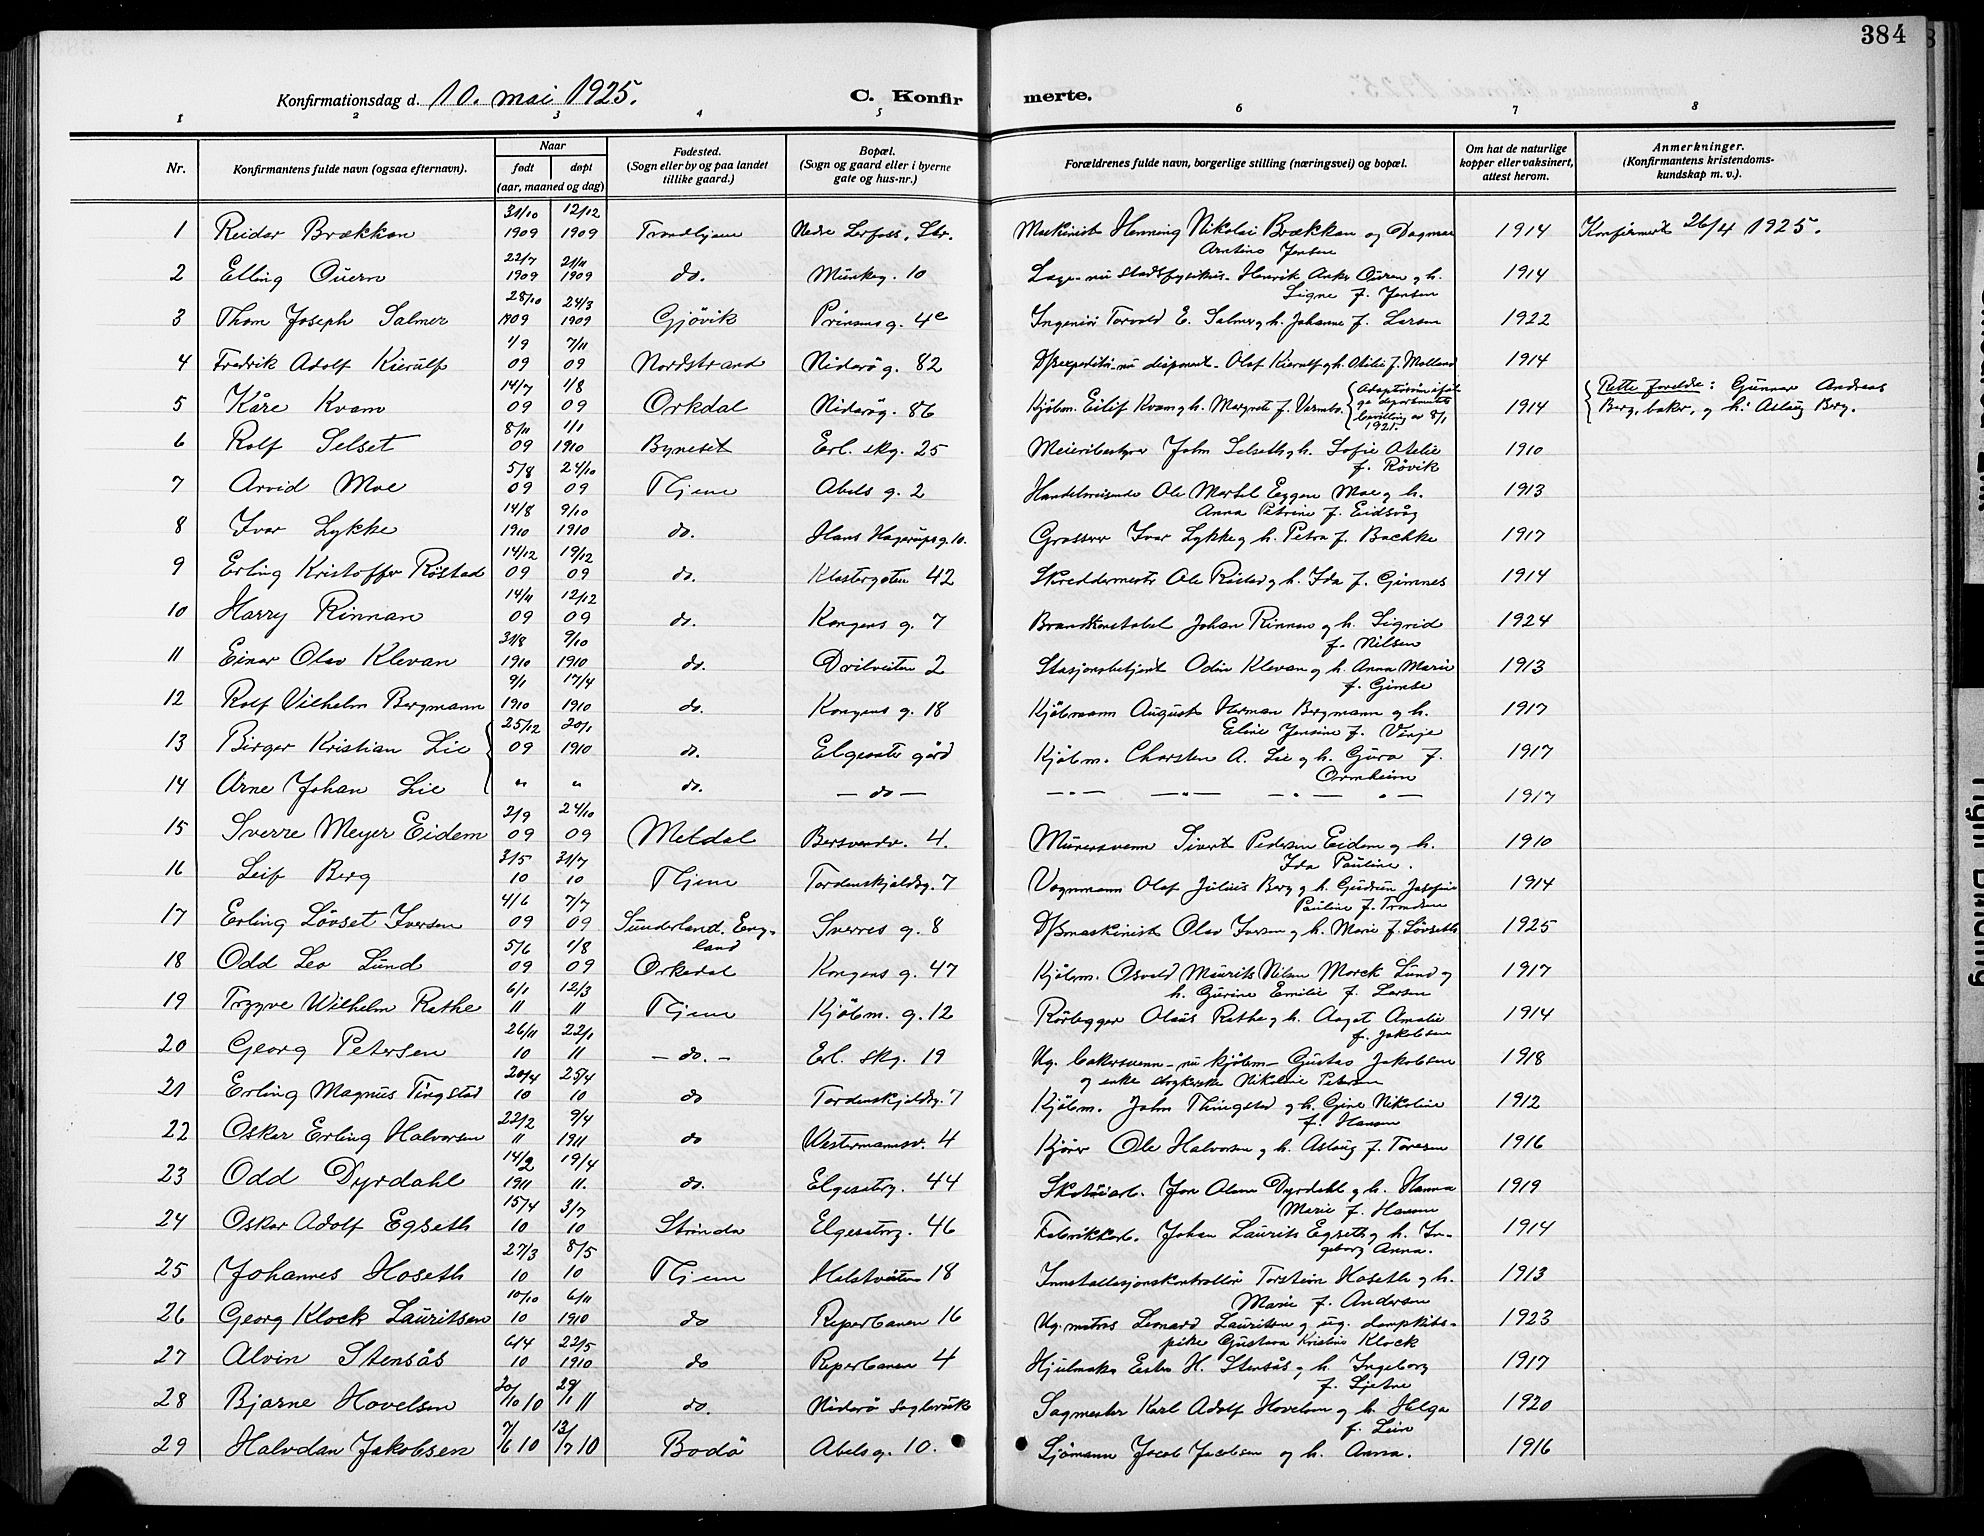 384
Konfirmationsdag d. 10. mai 1925. C. Konfirmerte.
1 2 3 4 5 6 7 8
Nr. Konfirmantens fulde navn (ogsaa efternavn). Naar født døpt (aar, maaned og dag) Fødested. (Sogn eller by og paa landet tillike gaard.) Bopæl. (Sogn og gaard eller i byerne gate og hus-nr.) Forældrenes fulde navn, borgerlige stilling (næringsvei) og bopæl. Om hat de naturlige kopper eller vaksinert, attest herom. Anmerkninger. (Konfirmantens kristendomskundskap m. v.).
1 Reidar Brækkan 31/10 1909 12/12 1909 Trondhjem Nedre Lerfoss, Str. Maskinist Henning Nikolai Brækkan og Dagmar Arntine Jensen 1914 Konfirmert 26/4 1925.
2 Elling Ouren 22/7 1909 21/11 1909 do. Munkeg. 10 Læge nu stadsfysikus Henrik Anker Ouren og h. Signe f. Jensen 1914
3 Thom Joseph Salmer 28/10 1909 24/3 1909 Gjövik Prinsensg. 4c Ingeniör Torvald E. Salmer og h. Johanne f. Larsen 1922
4 Fredrik Adolf Kierulf 1/9 09 7/11 09 Nordstrand Nidarö g. 82 D/Sexpeditör nu disponent Olaf Kierulf og h. Otilie f. Molland 1914
5 Kåre Kvam 14/7 09 1/8 09 Orkdal Nidarög. 86 Kjöbm. Eilif Kvam og h. Margrete f. Varmbo. bevilling av 8/1 1921. 1914 Rette forældre: Gunnar Andreas Berg, baker, og h. Aslaug Berg.
6 Rolf Selset 8/11 09 1/1 1910 Byneset Erl. skg. 25 Meieribestyrer John Selseth og h. Sofie Atelie f. Rövik 1910
7 Arvid Moe 5/8 09 24/10 09 Thjem Abels g. 2 Handelsreisende Ole Martel Eggen Moe og h. Anna Petrine f. Eidsvåg 1913
8 Ivar Lykke 14/8 1910 9/10 1910 do. Hans Hagerupsg. 10. Grosserer Ivar Lykke og h. Petra f. Bachke 1917
9 Erling Kristoffer Röstad 14/12 09 19/12 09 do. Klostergaten 42 Skreddermester Ole Röstad og h. Ida f. Gimnes 1914
10 Harry Rinnan 14/11 09 12/12 09 do. Kongens g. 7 Brandkonstabel Johan Rinnan og h. Sigrid f. Nilsen 1924
11 Einar Olav Klevan 31/8 1910 9/10 1910 do. Dvilveiten 2 Stasjonsbetjent Odin Klevan og h. Anna Marie f. Gimse 1913
12 Rolf Vilhelm Bergmann 9/1 1910 17/4 1910 do. Kongens g. 18 Kjöbmann August Herman Bergmann og h. Eline Jensine f. Vinje 1917
13 Birger Kristian Lie 25/12 09 20/1 1910 do. Elgesæter gård Kjöbm. Charsten A. Lie og h. Gura f. Ormheim 1917
14 Arne Johan Lie " " do. — do — — " — — " — — " — " — 1917
15 Sverre Meyer Eidem 2/9 09 24/10 09 Meldal Bersvendv. 4. Murersvenn Sivert Pedersen Eidem og h. Ida Pauline. 1910
16 Leif Berg 31/5 10 31/7 10 Thjem Tordenskjoldsg. 7 Vognmann Olaf Julius Berg og h. Gudrun Josefine Pauline f. Trondsen 1914
17 Erling Lövset Iversen 4/6 09 7/7 09 Sunderland, England Sverres g. 8 D/Smaskinist Olav Iversen og h. Marie f. Lövseth 1925
18 Odd Leo Lund 5/6 09 1/8 09 Orkedal Kongens g. 47 Kjöbm. Osvald Maurits Nilsen Morck Lund og h. Gurine Emilie f. Larsen 1917
19 Trygve Wilhelm Rathe 6/1 11 12/3 11 Thjem Kjöbm. g. 12 Rörlegger Olaus Rathe og h. Aagot Amalie f. Jakobsen 1914
20 Georg Petersen 26/11 10 22/1 11 — do. — Erl. skg. 19 Ug. bakersvenn — nu kjöbm — Gustav Jakobsen og enke Nikoline Petersen 1918
21 Erling Magnus Tingstad 20/4 10 25/4 10 do Tordenskjoldsg. 7 Kjöbm. John Thingstad og h. Gine Nikoline f. Hansen 1912
22 Oskar Erling Halvorsen 22/2 11 9/4 1911 do Vestermannsv. 4 Kjörer Ole Halvorsen og h. Aslaug f. Toresen 1916
23 Odd Dyrdahl 14/2 1911 19/4 11. do. Elgesæterg. 44 Skotöiarb. Jon Olsen Dyrdahl og h. Hanna Marie f. Hansen 1919
24 Oskar Adolf Egseth 15/4 10 3/7 10 Strinda Elgesæterg. 46 Fabrikkarb. Johan Laurits Egseth og h. Ingeborg Anna. 1914
25 Johannes Hoseth 27/3 10 8/5 10 Thjem Halstveiten 18 Innstallasjonskontrollör Torstein Hoseth og h. Marie f. Andersen 1913
26 Georg Klock Lauritsen 10/10 10 6/11 1910 do Reperbanen 16 Ug. matros Leonard Lauritsen og ug. pike Gustava Kristine Klock 1923
27 Alvin Stensås 6/4 10 22/5 1910 do Reperbanen 4 Hjulmaker H. Stensås og h. Ingeborg f. Sjetne 1917
28 Bjarne Hovelsen 20/10 10 29/1 11 do. Nidarö Sagmester Karl Adolf Hovelsen og h. Helga f. Lein 1920
29 Halvdan Jakobsen 7/6 10 13/7 10 Bodö Abelsg. 10. Sjömann Jacob Jacobsen og h. Anna. 1916